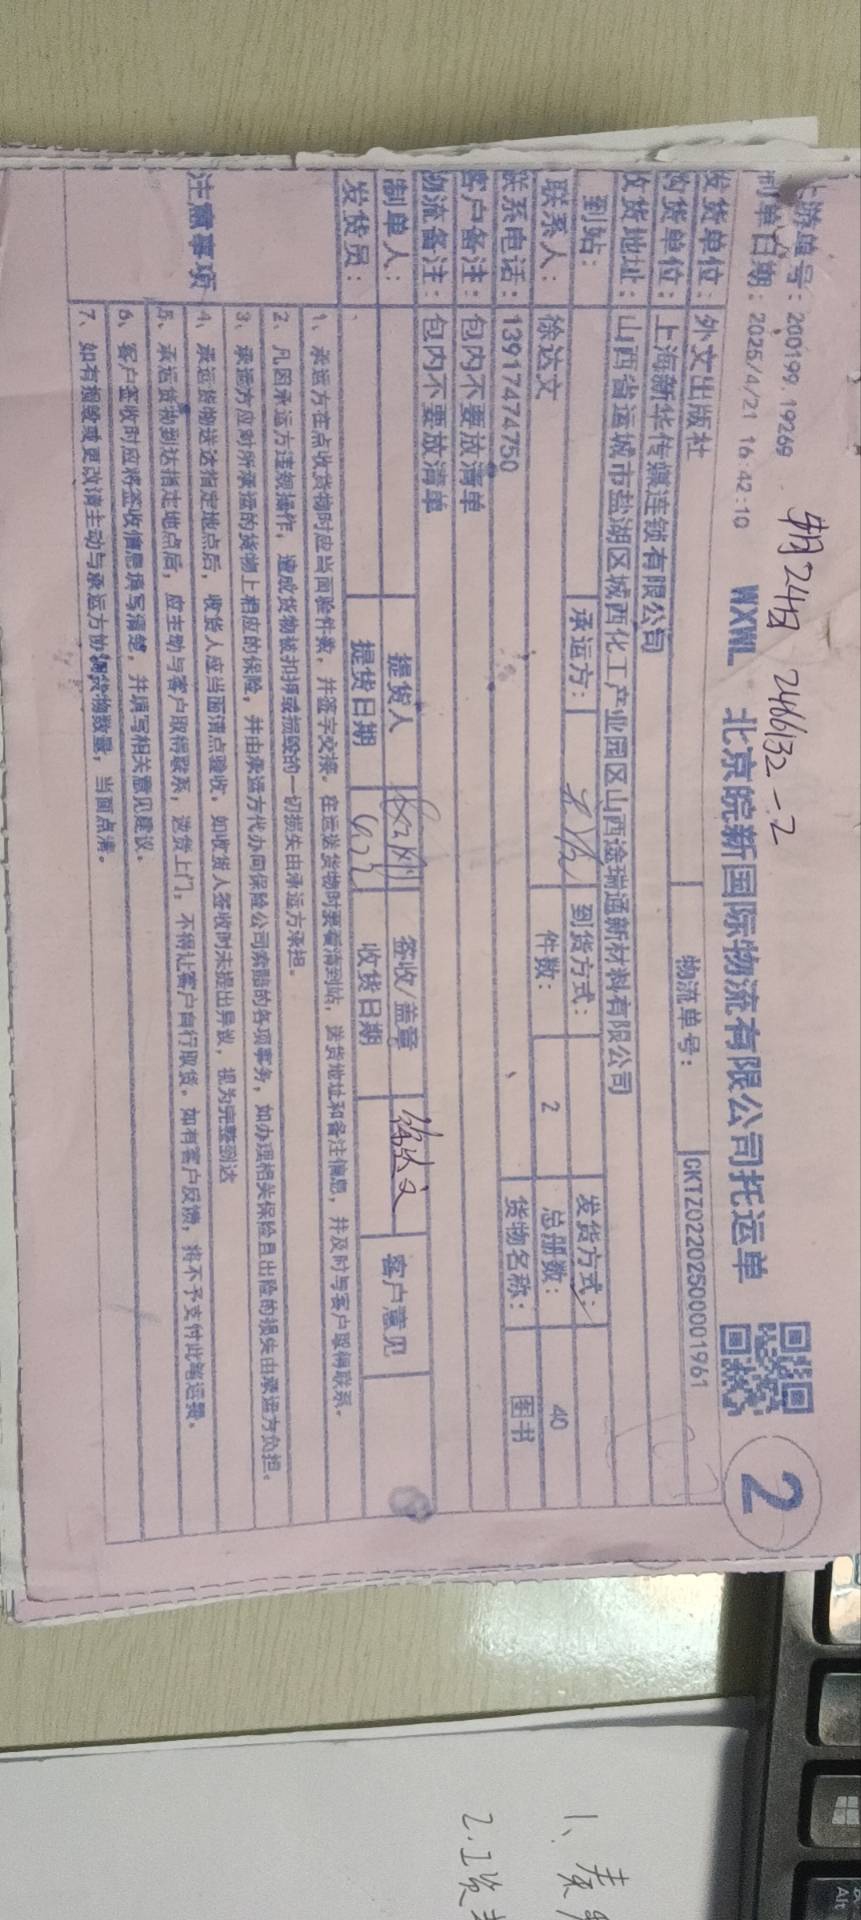 游单号：200199,19269
4月24日 2466132-2
制单日期：2025/4/21 16:42:10 WXWL 北京皖新国际物流有限公司托运单 2
发货单位：外文出版社 物流单号： CKTZ02202500001961
购货单位：上海新华传媒连锁有限公司
收货地址：山西省运城市盐湖区城西化工产业园区山西途瑞通新材料有限公司
到站： 承运方： 到货方式： 发货方式：
联系人：徐达文 件数： 2 总册数： 40
联系电话：13917474750 货物名称： 图书
客户备注：包内不要放清单
物流备注：包内不要放清单
制单人： 提货人 签收/盖章 徐达文 客户意见
发货员： 提货日期 收货日期
注意事项
1、承运方在点收货物时应当面验件数，并签字交接。在运送货物时要看清到站，送货地址和备注信息，并及时与客户取得联系。
2、凡因承运方违规操作，造成货物被扣押或损毁的一切损失由承运方承担。
3、承运方应对所承运的货物上相应的保险，并由承运方代办向保险公司索赔的各项事务，如办理相关保险且出险的损失由承运方负担。
4、承运货物送达指定地点后，收货人应当面清点验收，如收货人签收时未提出异议，视为完整到达
5、承运货物到达指定地点后，应主动与客户取得联系，送货上门，不得让客户自行取货，如有客户反馈，将不予支付此笔运费。
6、客户签收时应将签收信息填写清楚，并填写相关意见建议。
7、如有损毁或更改请主动与承运方协调货物数量，当面点清。
1、
2.
Alt